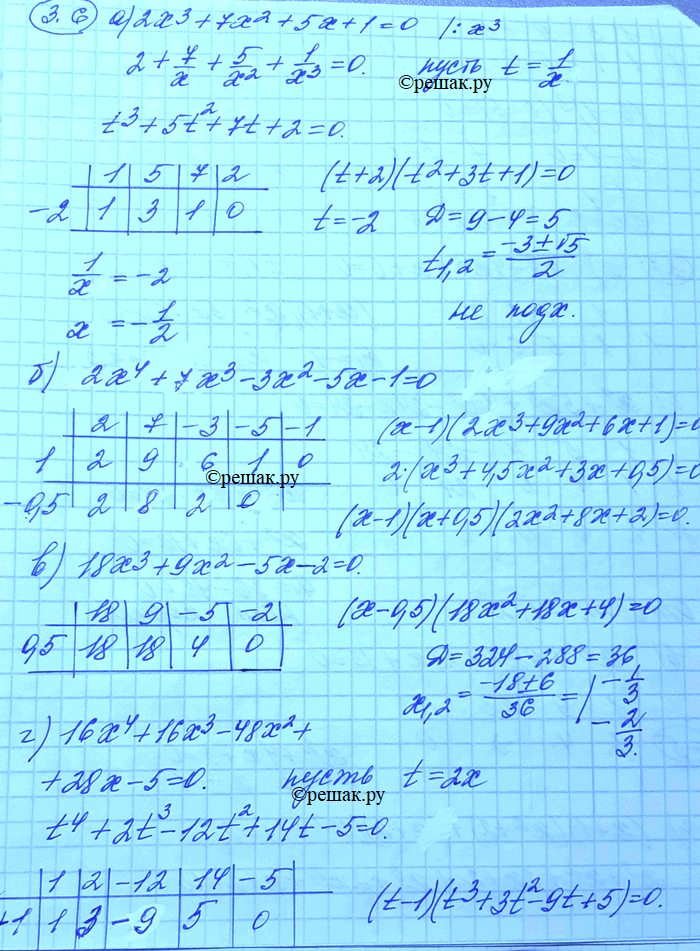 3.6 а) 2x³ + 7x² + 5x + 1 = 0 |: x³
2 + 7/x + 5/x² + 1/x³ = 0. пусть t = 1/x
©решак.ру
t³ + 5t² + 7t + 2 = 0.
| 1 | 5 | 7 | 2
-2 | 1 | 3 | 1 | 0
(t+2)(t²+3t+1)=0
t = -2 Д = 9 - 4 = 5
t1,2 = (-3±√5)/2
1/x = -2
x = -1/2
не подх.
б) 2x⁴ + 7x³ - 3x² - 5x - 1 = 0
| 2 | 7 | -3 | -5 | -1
1 | 2 | 9 | 6 | 1 | 0
-0,5 | 2 | 8 | 2 | 0 |
©решак.ру
(x-1)(2x³+9x²+6x+1)=0
2·(x³+4,5x²+3x+0,5)=0
(x-1)(x+0,5)(2x²+8x+2)=0.
в) 18x³ + 9x² - 5x - 2 = 0.
| 18 | 9 | -5 | -2
0,5 | 18 | 18 | 4 | 0
(x-0,5)(18x²+18x+4)=0
Д = 324 - 288 = 36
x1,2 = (-18±6)/36 = [ -1/3
-2/3.
г) 16x⁴ + 16x³ - 48x² +
+ 28x - 5 = 0. пусть t = 2x
©решак.ру
t⁴ + 2t³ - 12t² + 14t - 5 = 0.
| 1 | 2 | -12 | 14 | -5
+1 | 1 | 3 | -9 | 5 | 0
(t-1)(t³+3t²-9t+5)=0.